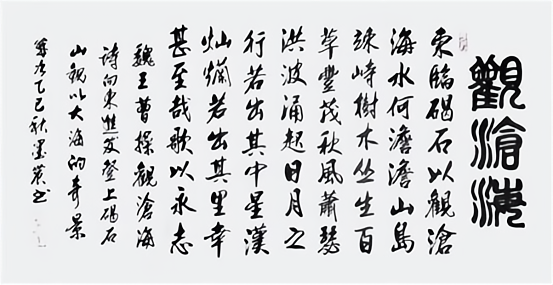 觀滄海
東臨碣石以觀滄
海水何澹澹山島
竦峙樹木丛生百
草豐茂秋風蕭瑟
洪波涌起日月之
行若出其中星漢
灿爛若出其里幸
甚至哉歌以永志
魏王曹操觀滄海
诗向東進登上碣石
山観以大海的奇景
乙巳秋墨书